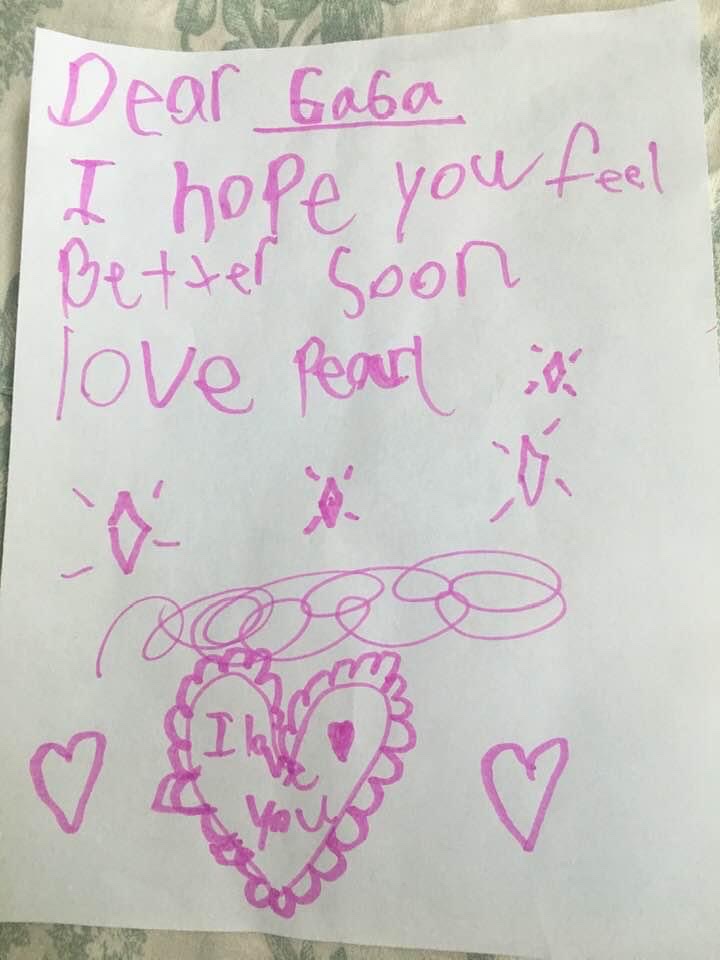 Dear GaGa
I hope you feel
Better Soon
love Pearl
I love
you